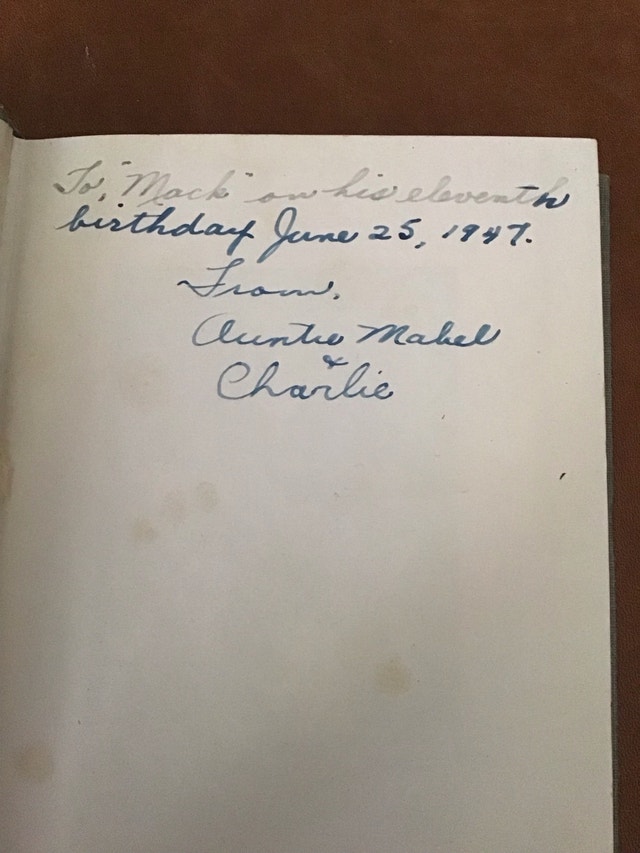 To, "Mack" on his eleventh
birthday June 25, 1947.
From,
Auntie Mabel
&
Charlie